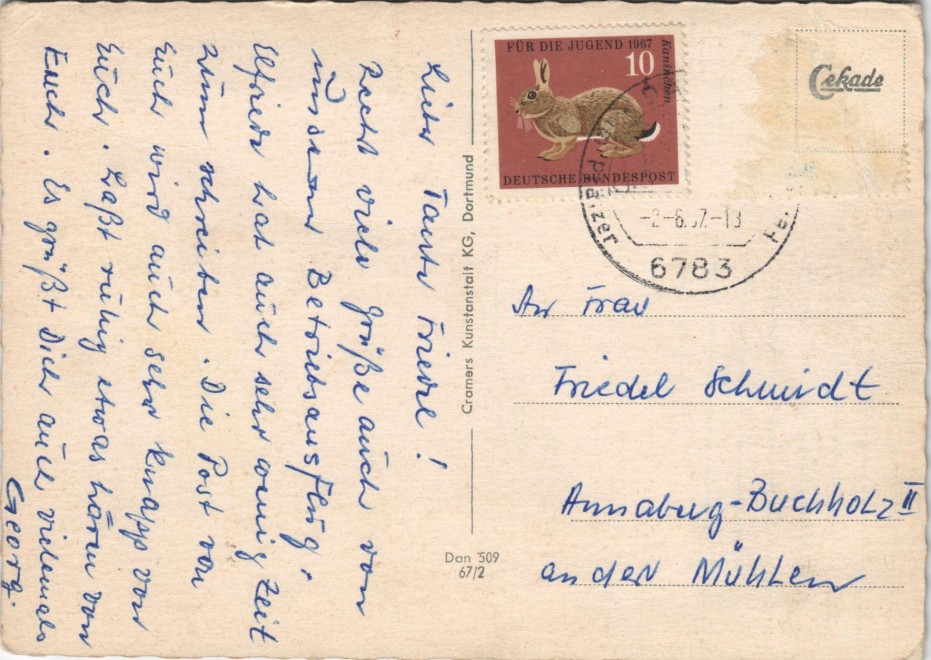 Liebe Tante Friedel!
Recht viele Grüße auch von
unserem Betriebsausflug.
Elfriede hat auch sehr wenig Zeit
zum schreiben. Die Post von
Euch wird auch sehr knapp von
Euch. Laßt ruhig etwas hören von
Euch. Es grüßt Dich auch vielmals
Georg.
Cramers Kunstanstalt KG, Dortmund
Dan 509
67/2
FÜR DIE JUGEND 1967
Kaninchen
10
DEUTSCHE BUNDESPOST
-2-6.67.-18
6783
Cekade
An Frau
Friedel Schmidt
Annaberg-Buchholz II
an den Mühlen